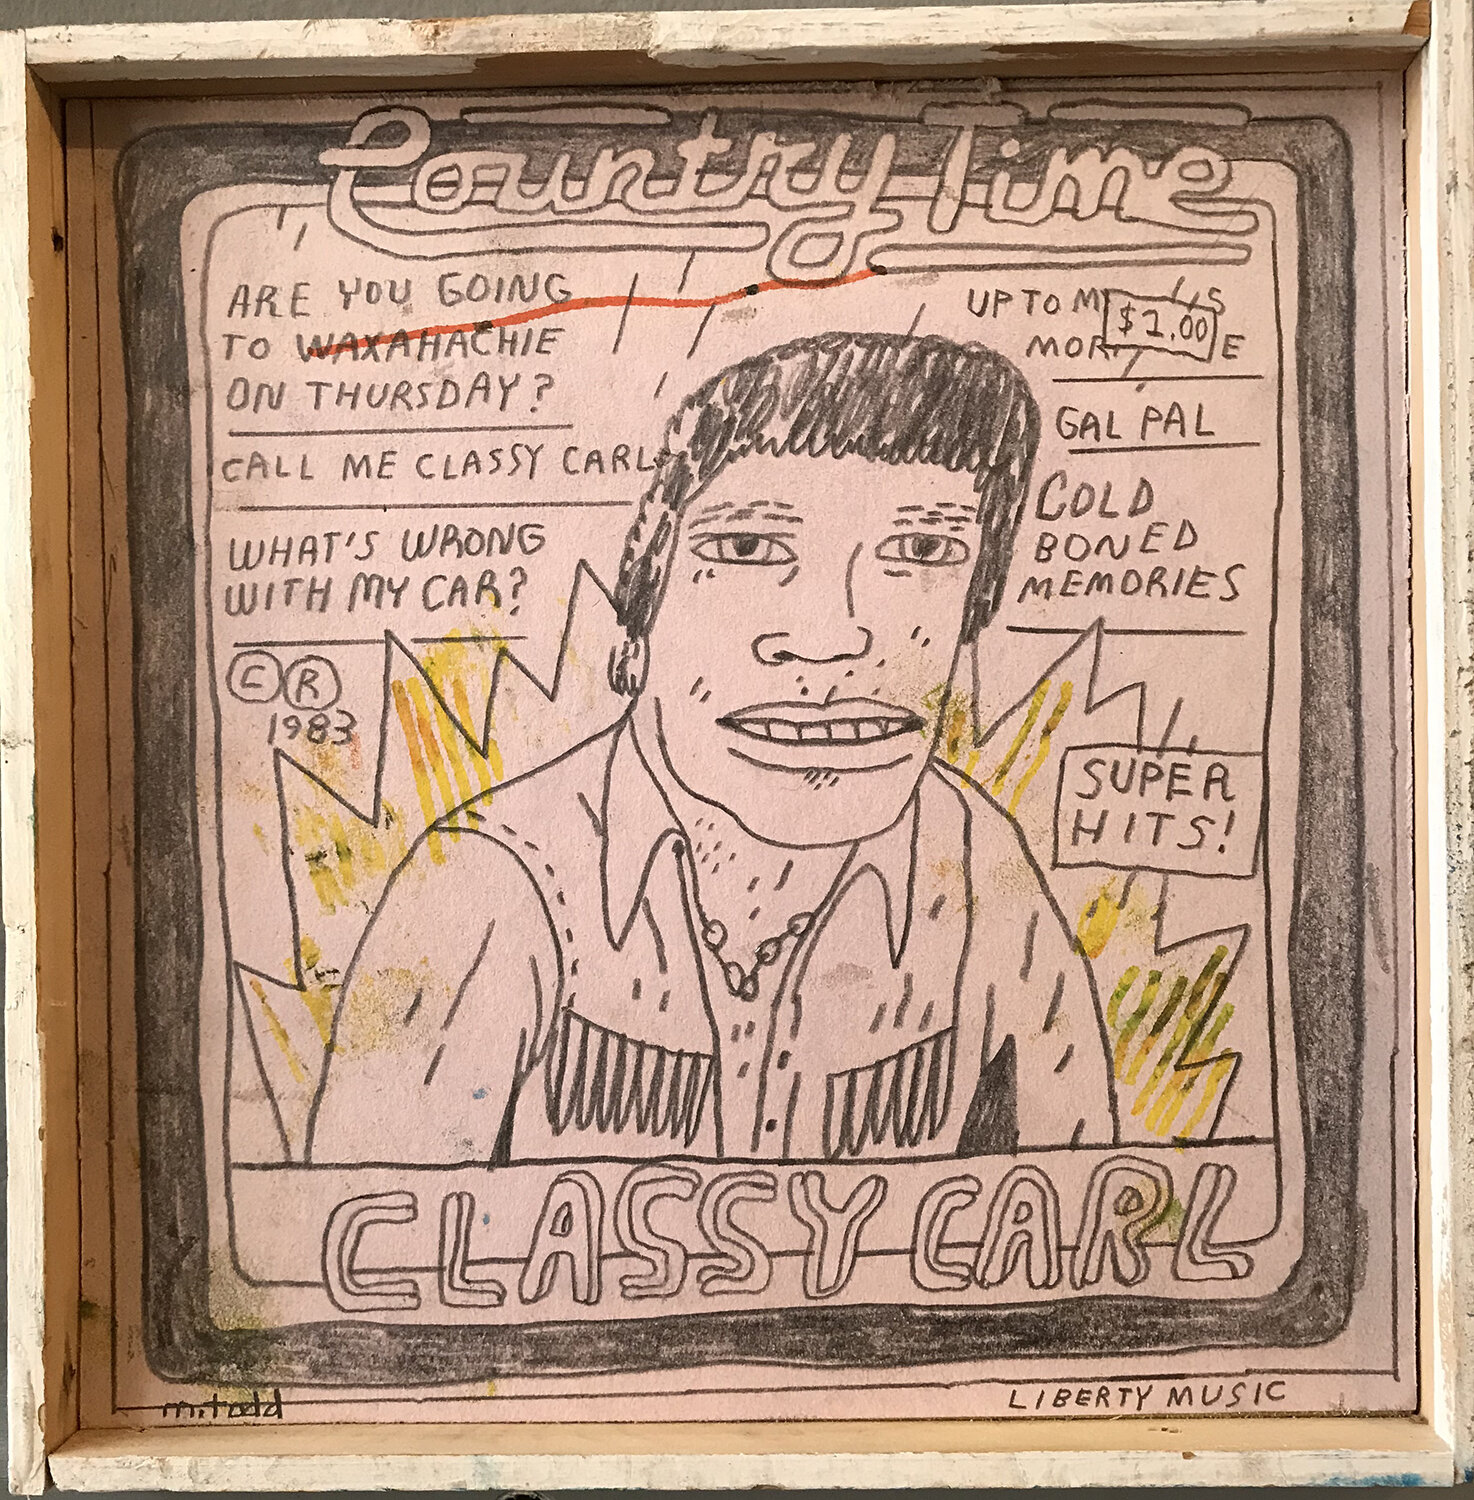 Country Time
ARE YOU GOING
TO WAXAHACHIE
ON THURSDAY?
CALL ME CLASSY CARL
WHAT'S WRONG
WITH MY CAR?
C R
1983
UP TO
$1.00
GAL PAL
COLD
BONED
MEMORIES
SUPER
HITS!
CLASSY CARL
m.todd
LIBERTY MUSIC